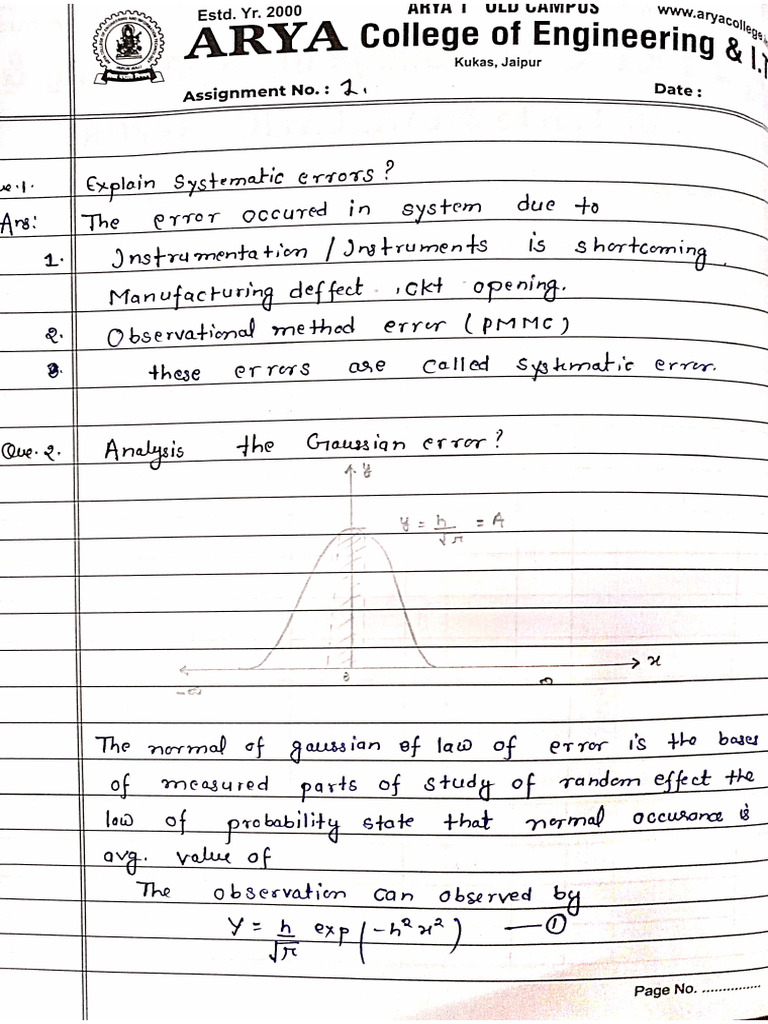 Estd. Yr. 2000
ARYA 1 OLD CAMPUS
www.aryacollege.
ARYA College of Engineering & I.T
Kukas, Jaipur
Assignment No. : 1.
Date :
ue.1. Explain Systematic errors?
Ans: The error occured in system due to
1. Instrumentation / Instruments is shortcoming
Manufacturing deffect , ckt opening.
2. Observational method error (PMMC)
3. these errors are called systematic error.
Que. 2. Analysis the Gaussian error?
y
y = h/√π = A
x
-∞
The normal of gaussian of law of error is the bases
of measured parts of study of random effect the
law of probability state that normal occurance is
avg. value of
The observation can observed by
Y = h/√π exp (-h²x²) — ①
Page No. ...............